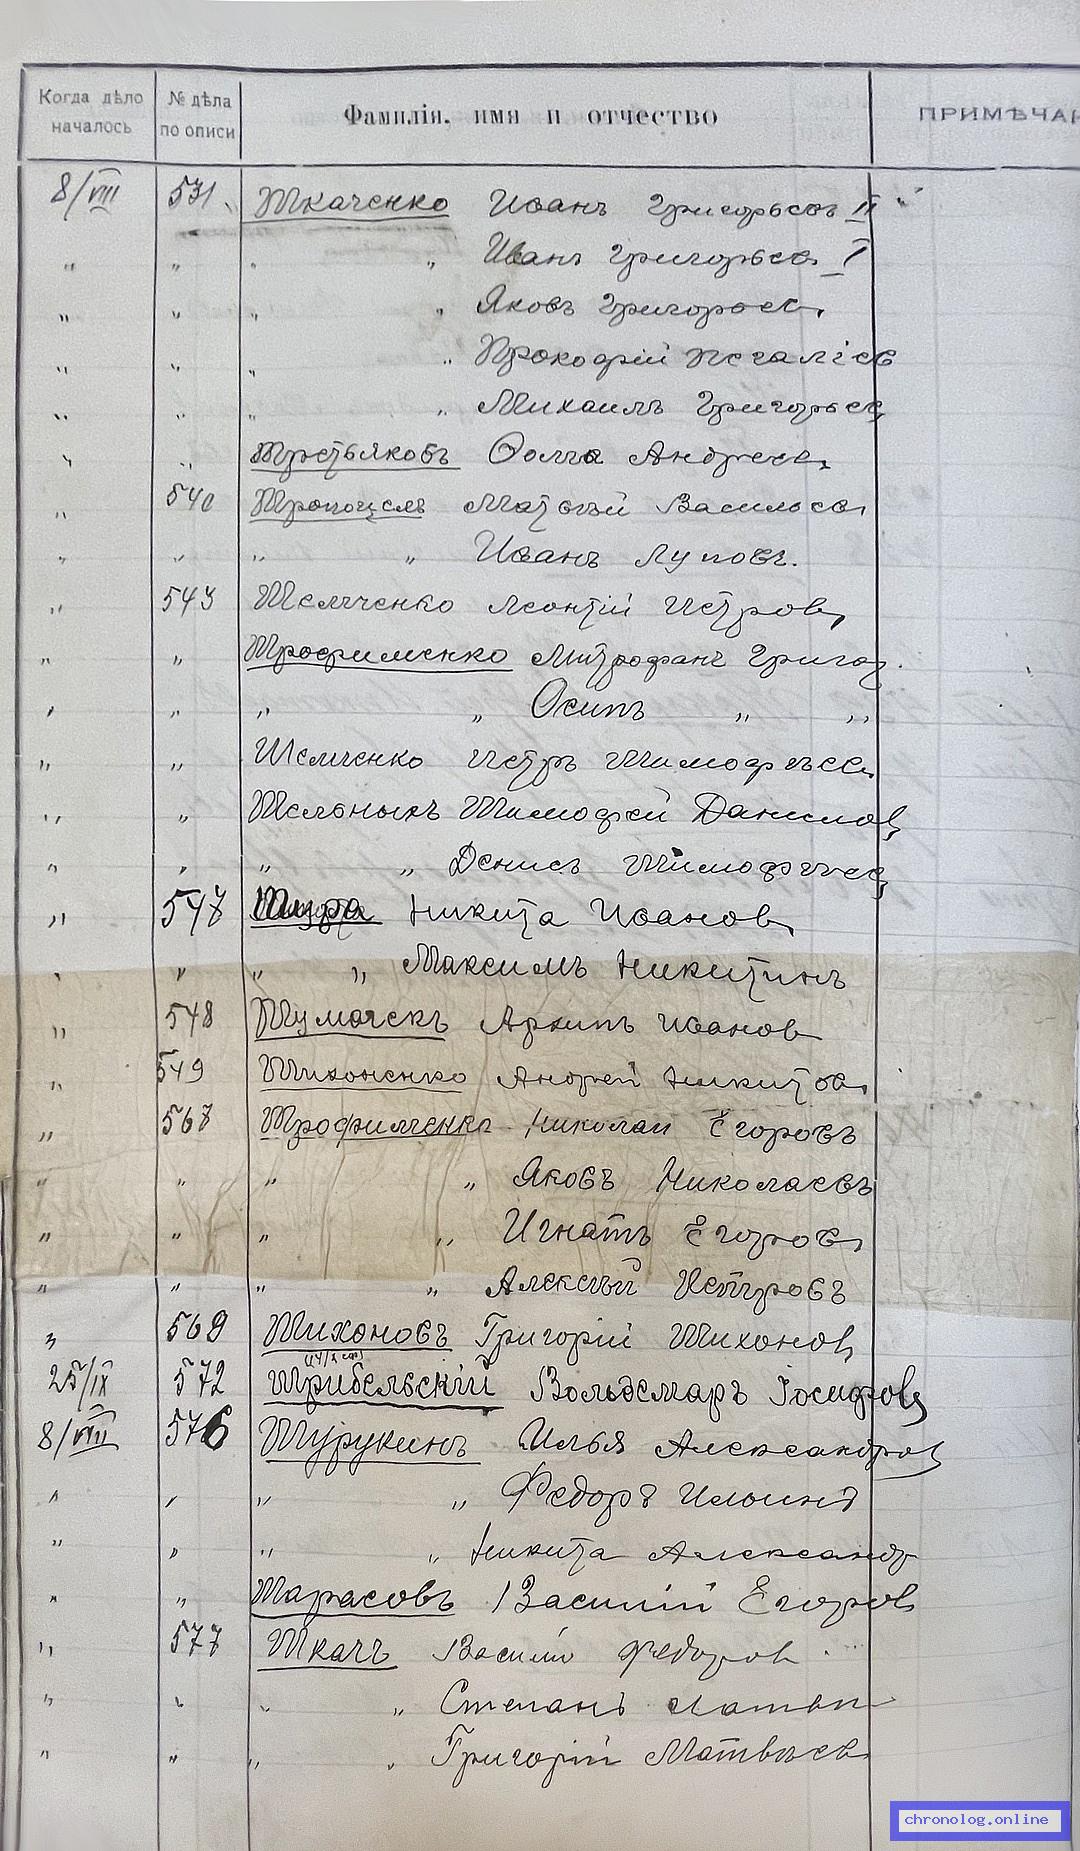 Когда дѣло началось
№ дѣла по описи
Фамилія, имя и отчество
ПРИМѢЧАН
8/VIII 531 Ткаченко Иванъ Григорьевъ II
" " " " Иванъ Григорьев I
" " " " Яковъ Григорьев
" " " " Прокофій
" " " " Михаилъ Григорьев
" " Третьяковъ Андреев
" 540 Матвѣй Васильев
" " " " Иванъ Луповъ.
" 543 Темченко Леонтій Петров
" " Трофименко Митрофанъ Григор.
" " " " Осипъ " "
" " Темченко Петръ Тимофѣев
" " Тельныхъ Тимофей Данилов
" " " " Денисъ Тимофѣев
" 547 Тигра Никита Иванов
" " " " Максимъ Никитинъ
" 548 Тумачекъ Архипъ Иванов
" 549 Тихоненко Андрей Никитов
" 567 Трофимченко Николай Егоровъ
" " " " Яковъ Николаевъ
" " " " Игнатъ Егоров
" " " " Алексѣй Петровъ
" 569 Тихоновъ Григорій Тихонов
25/IX 572 Трибельскій Вольдемаръ Іосифов
8/VIII 576 Турукинъ Илья Александров
" " " " Федоръ Ильинъ
" " " " Никита Александр
" " Тарасовъ Василій Егоров
" 577 Ткачъ Василій Федоров
" " " " Степанъ
" " " " Григорій Матвѣев
chronolog.online